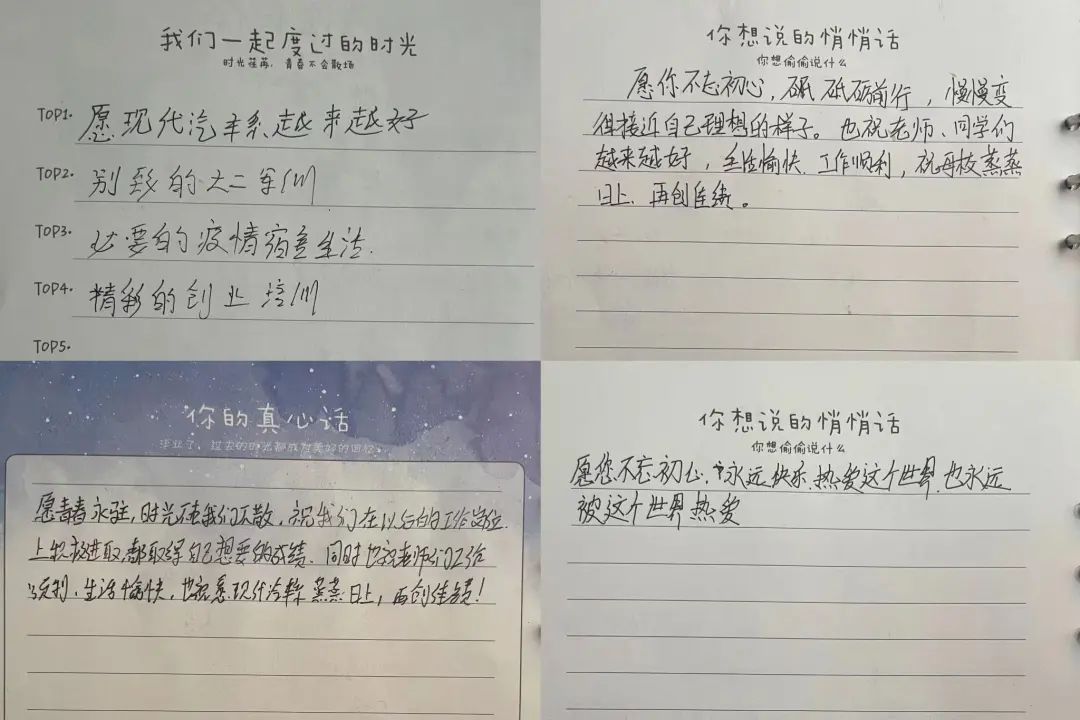 我们一起度过的时光
时光荏苒，青春不会散场
TOP1. 愿现代汽车系越来越好
TOP2. 别致的大二军训
TOP3. 必要的疫情宿舍生活.
TOP4. 精彩的创业培训
TOP5.
你想说的悄悄话
你想偷偷说什么
愿你不忘初心，砥砺前行，慢慢变
得接近自己理想的样子。也祝老师、同学们
越来越好，生活愉快.工作顺利，祝母校蒸蒸
日上.再创佳绩。
你的真心话
毕业了，过去的时光都成为美好的回忆
愿青春永驻，时光不老我们不散，祝我们在以后的工作岗位
上积极进取,都取得自己想要的成绩.同时也祝老师们工作
顺利、生活愉快，也祝愿现代汽车系蒸蒸日上，再创佳绩！
你想说的悄悄话
你想偷偷说什么
愿您不忘初心，永远快乐.热爱这个世界.也永远
被这个世界热爱